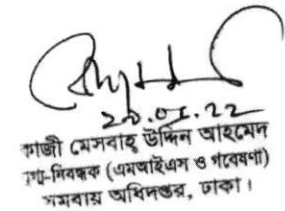 ২০.০১.২২
কাজী মেসবাহ উদ্দিন আহমেদ
যুগ্ম-নিবন্ধক (এমআইএস ও গবেষণা)
সমবায় অধিদপ্তর, ঢাকা।